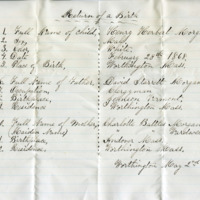 Return of a Birth
1 Full Name of Child, Henry Herbert Morgan
2 Sex, Male
3 Color, White
4 Date February 28th 1868
5 Place of Birth, Worthington Mass.
6 Full Name of Father, David Sterrett Morgan
Occupation, Clergyman
Birthplace, Johnson Vermont,
Residence Worthington Mass.
Full Name of Mother, Charlotte Butler Morgan
(Maiden Name)
Birthplace, Andover Mass.
Residence, Worthington Mass.
Worthington May 2nd